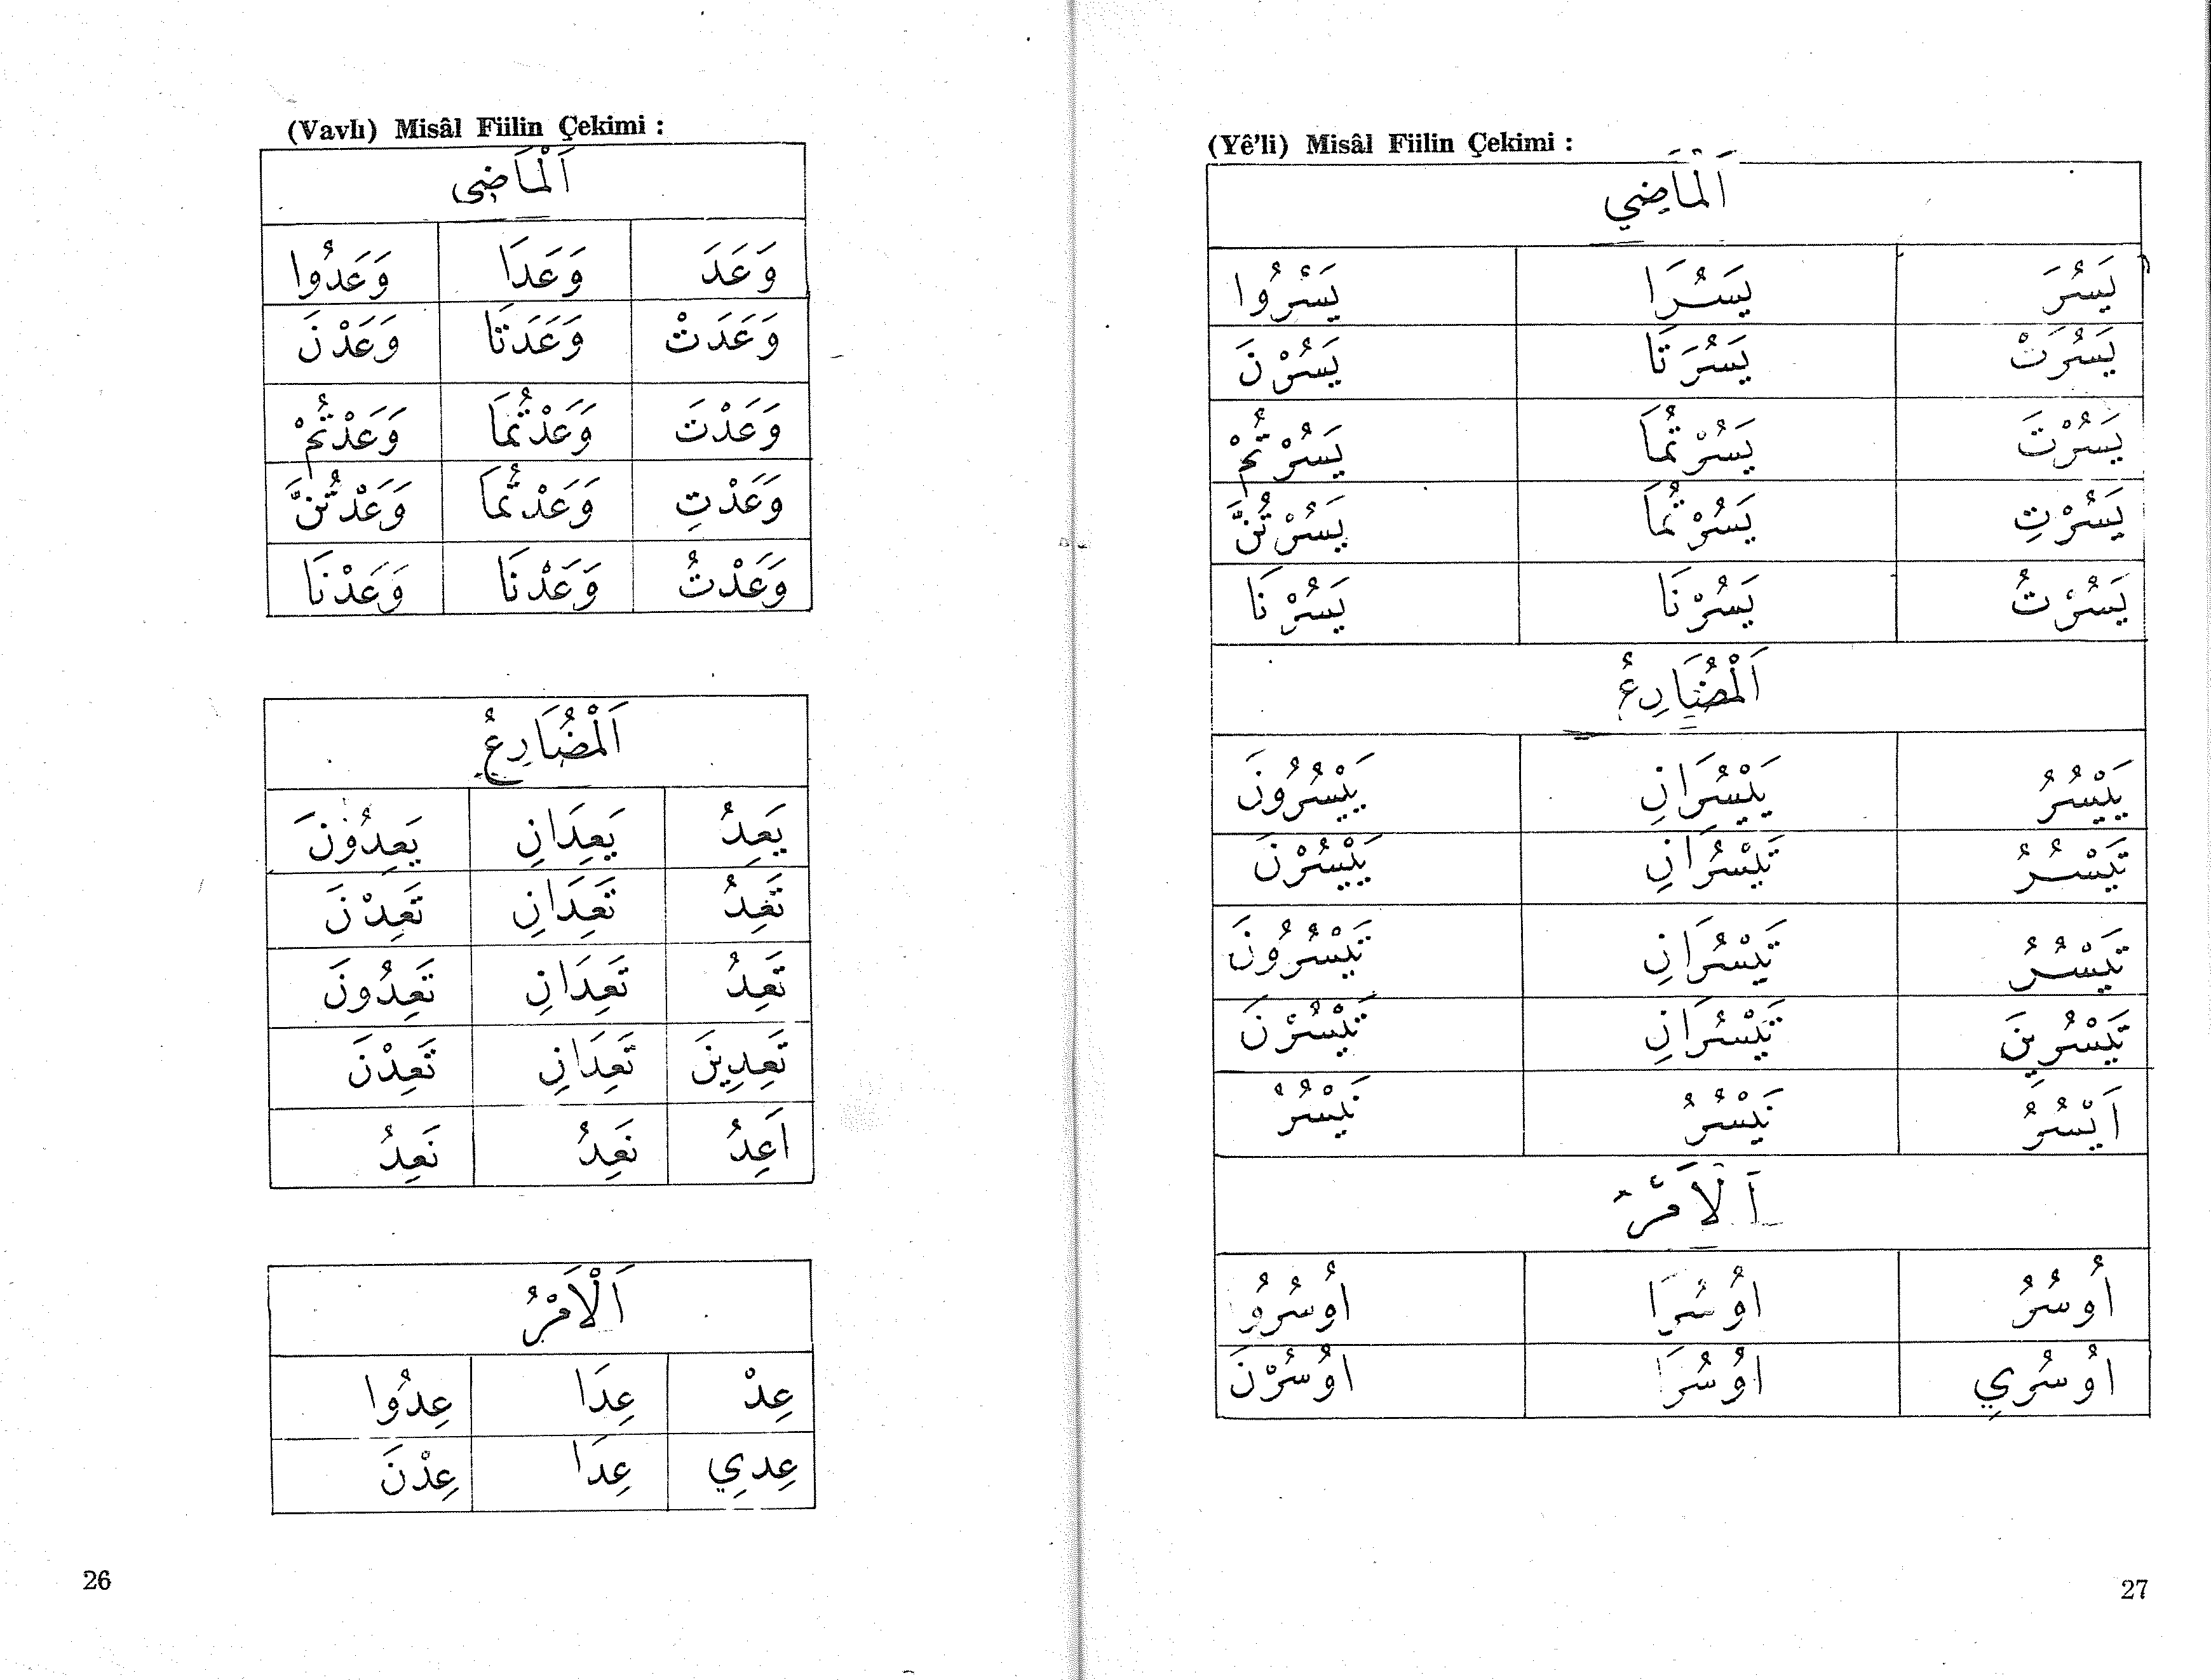 (Vavlı) Misâl Fiilin Çekimi :
اَلْمَاضِى
وَعَدَ وَعَدَا وَعَدُوا
وَعَدَتْ وَعَدَتَا وَعَدْنَ
وَعَدْتَ وَعَدْتُمَا وَعَدْتُمْ
وَعَدْتِ وَعَدْتُمَا وَعَدْتُنَّ
وَعَدْتُ وَعَدْنَا وَعَدْنَا
اَلْمُضَارِعُ
يَعِدُ يَعِدَانِ يَعِدُونَ
تَعِدُ تَعِدَانِ تَعِدْنَ
تَعِدُ تَعِدَانِ تَعِدُونَ
تَعِدِينَ تَعِدَانِ تَعِدْنَ
اَعِدُ نَعِدُ نَعِدُ
اَلْاَمْرُ
عِدْ عِدَا عِدُوا
عِدِي عِدَا عِدْنَ
26
(Yê'li) Misâl Fiilin Çekimi :
اَلْمَاضِي
يَسُرَ يَسُرَا يَسُرُوا
يَسُرَتْ يَسُرَتَا يَسُرْنَ
يَسُرْتَ يَسُرْتُمَا يَسُرْتُمْ
يَسُرْتِ يَسُرْتُمَا يَسُرْتُنَّ
يَسُرْتُ يَسُرْنَا يَسُرْنَا
اَلْمُضَارِعُ
يَيْسُرُ يَيْسُرَانِ يَيْسُرُونَ
تَيْسُرُ تَيْسُرَانِ يَيْسُرْنَ
تَيْسُرُ تَيْسُرَانِ تَيْسُرُونَ
تَيْسُرِينَ تَيْسُرَانِ تَيْسُرْنَ
اَيْسُرُ نَيْسُرُ نَيْسُرُ
اَلْاَمْرُ
اُوسُرُ اوُسُرَا اُوسُرُو
اوُسُرِي اوُسُرَا اوُسُرْنَ
27